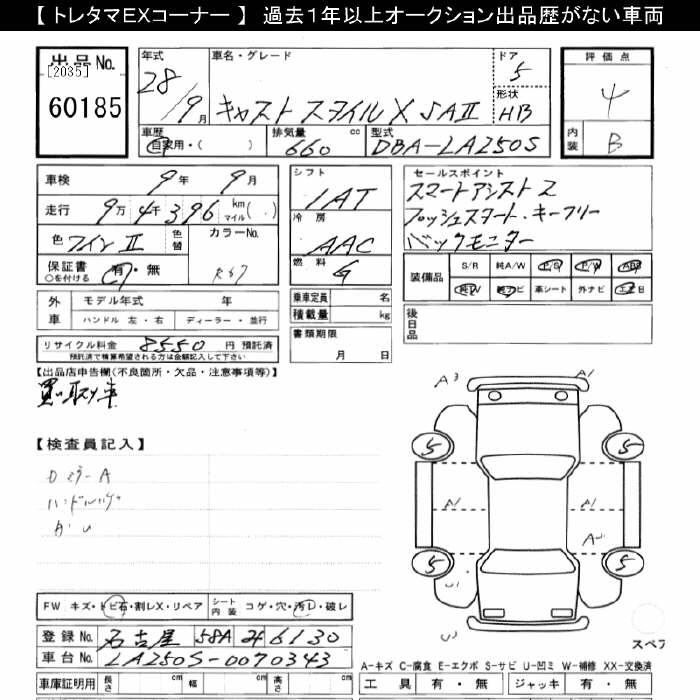 【 トレタマEXコーナー 】 過去1年以上オークション出品歴がない車両
出品No.
[2035]
60185
年式
28/9月
車名・グレード
キャスト スタイルX SAⅡ
ドア
5
形状
HB
評価点
4
内装
B
車歴
自家用・( )
排気量
660 cc
型式
DBA-LA250S
車検
9年 9月
走行
9万 4千 396 km マイル( )
色
ワインⅡ
色替
カラーNo.
R67
保証書
○を付ける
有・無
シフト
IAT
冷房
AAC
燃料
G
セールスポイント
スマートアシスト2
プッシュスタート・キーフリー
バックモニター
装備品
S/R 純A/W P/S P/W ABS
純TV 純ナビ 革シート 外ナビ エアB
外車
モデル年式 年
ハンドル 左・右 ディーラー・並行
乗車定員 名
積載量 kg
リサイクル料金 8550 円 預託済
預託済で積算希望される方は金額記入して下さい
書類期限
月 日
後日品
【出品店申告欄(不良箇所・欠品・注意事項等)】
買い取り車
【検査員記入】
DミラーA
A3 A1
5 5
A1 A1
5 5
U
FW キズ・トビ石・割レX・リペア
シート内装 コゲ・穴・汚レ・破レ
登録No. 名古屋 58A み 6130
車台No. LA250S-0070343
車庫証明用 長さ cm 幅 cm 高さ cm
スペア
A-キズ C-腐食 E-エクボ S-サビ U-凹ミ W-補修 XX-交換済
工具 有・無 ジャッキ 有・無